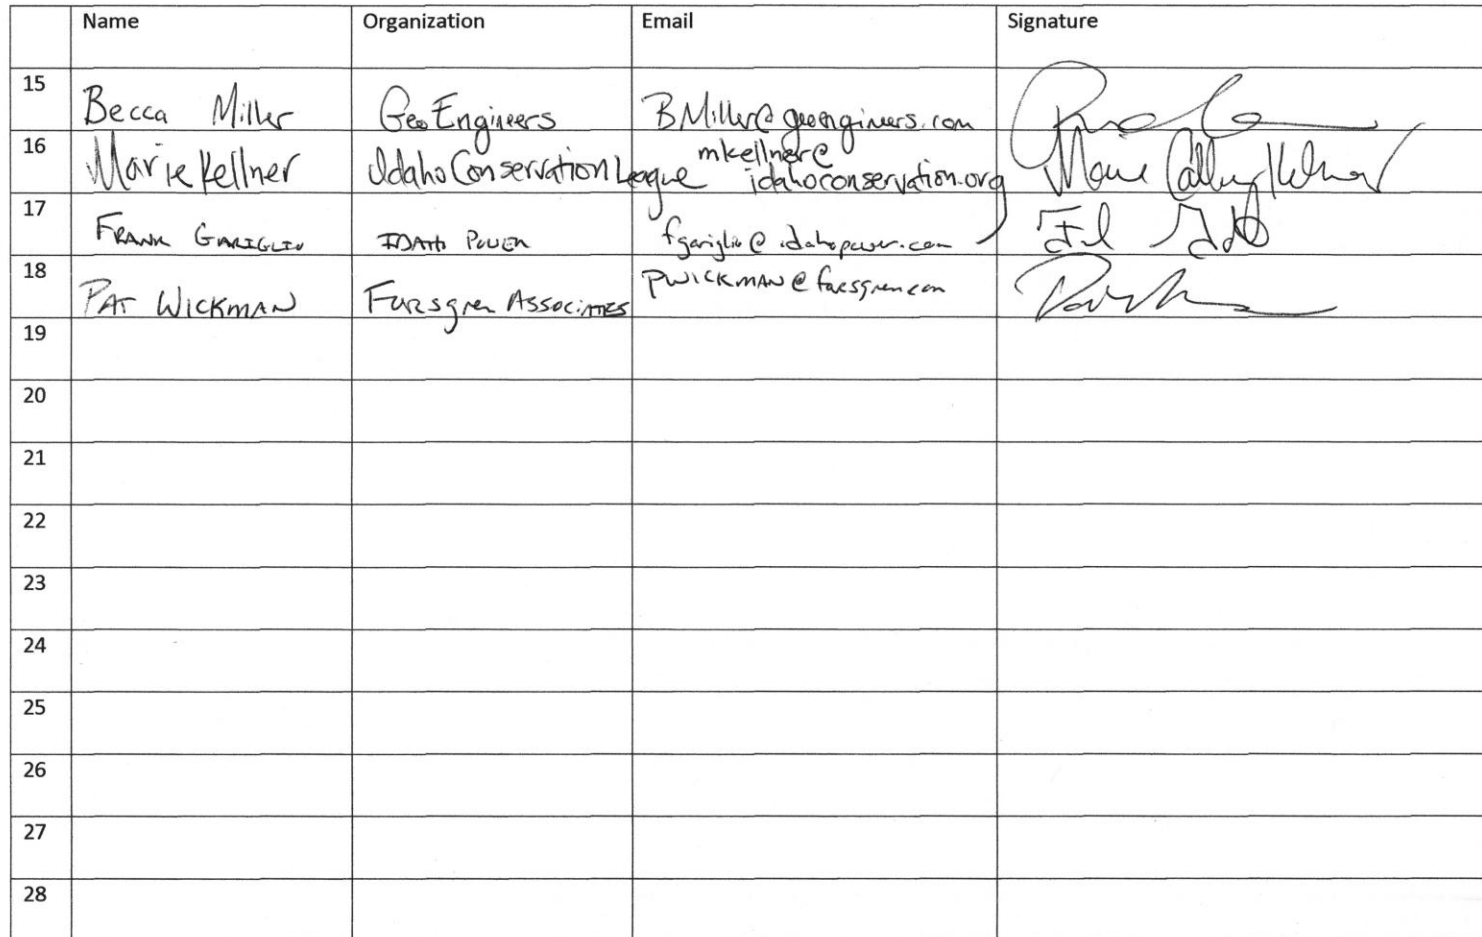 Name Organization Email Signature
15 Becca Miller GeoEngineers BMiller@geoengineers.com
16 Marie Kellner Idaho Conservation League mkellner@
idahoconservation.org
17 FRANK GARIGLIO IDAHO POWER fgariglio@idahopower.com
18 PAT WICKMAN Forsgren Associates PWICKMAN@forsgren.com
19
20
21
22
23
24
25
26
27
28